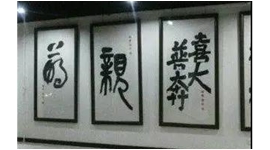 萌
親
喜大
普奔